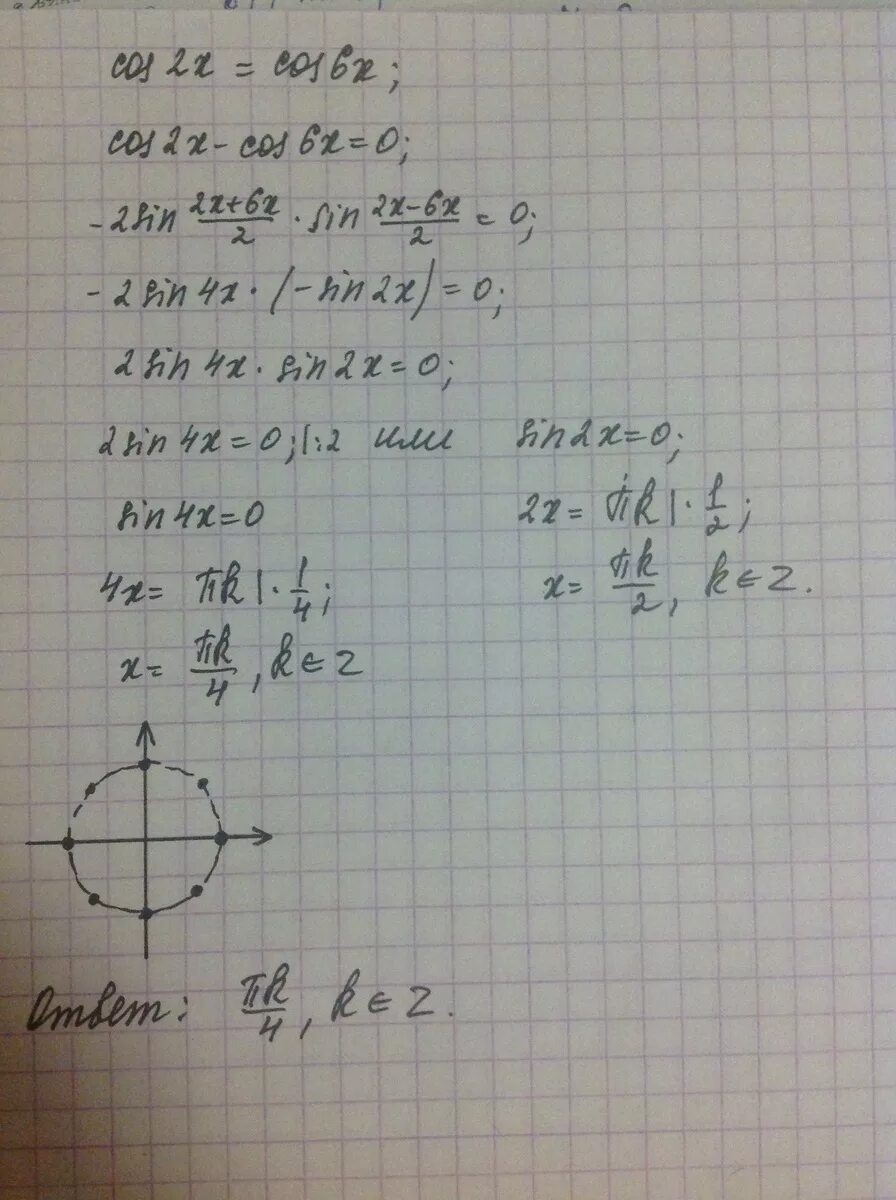 cos 2x = cos 6x;
cos 2x - cos 6x = 0;
-2 sin (2x+6x)/2 · sin (2x-6x)/2 = 0;
-2 sin 4x · (-sin 2x) = 0;
2 sin 4x · sin 2x = 0;
2 sin 4x = 0; |:2 или sin 2x = 0;
sin 4x = 0 2x = πk | · 1/2;
4x = πk | · 1/4; x = πk/2, k ∈ Z.
x = πk/4, k ∈ Z
Ответ: πk/4, k ∈ Z.